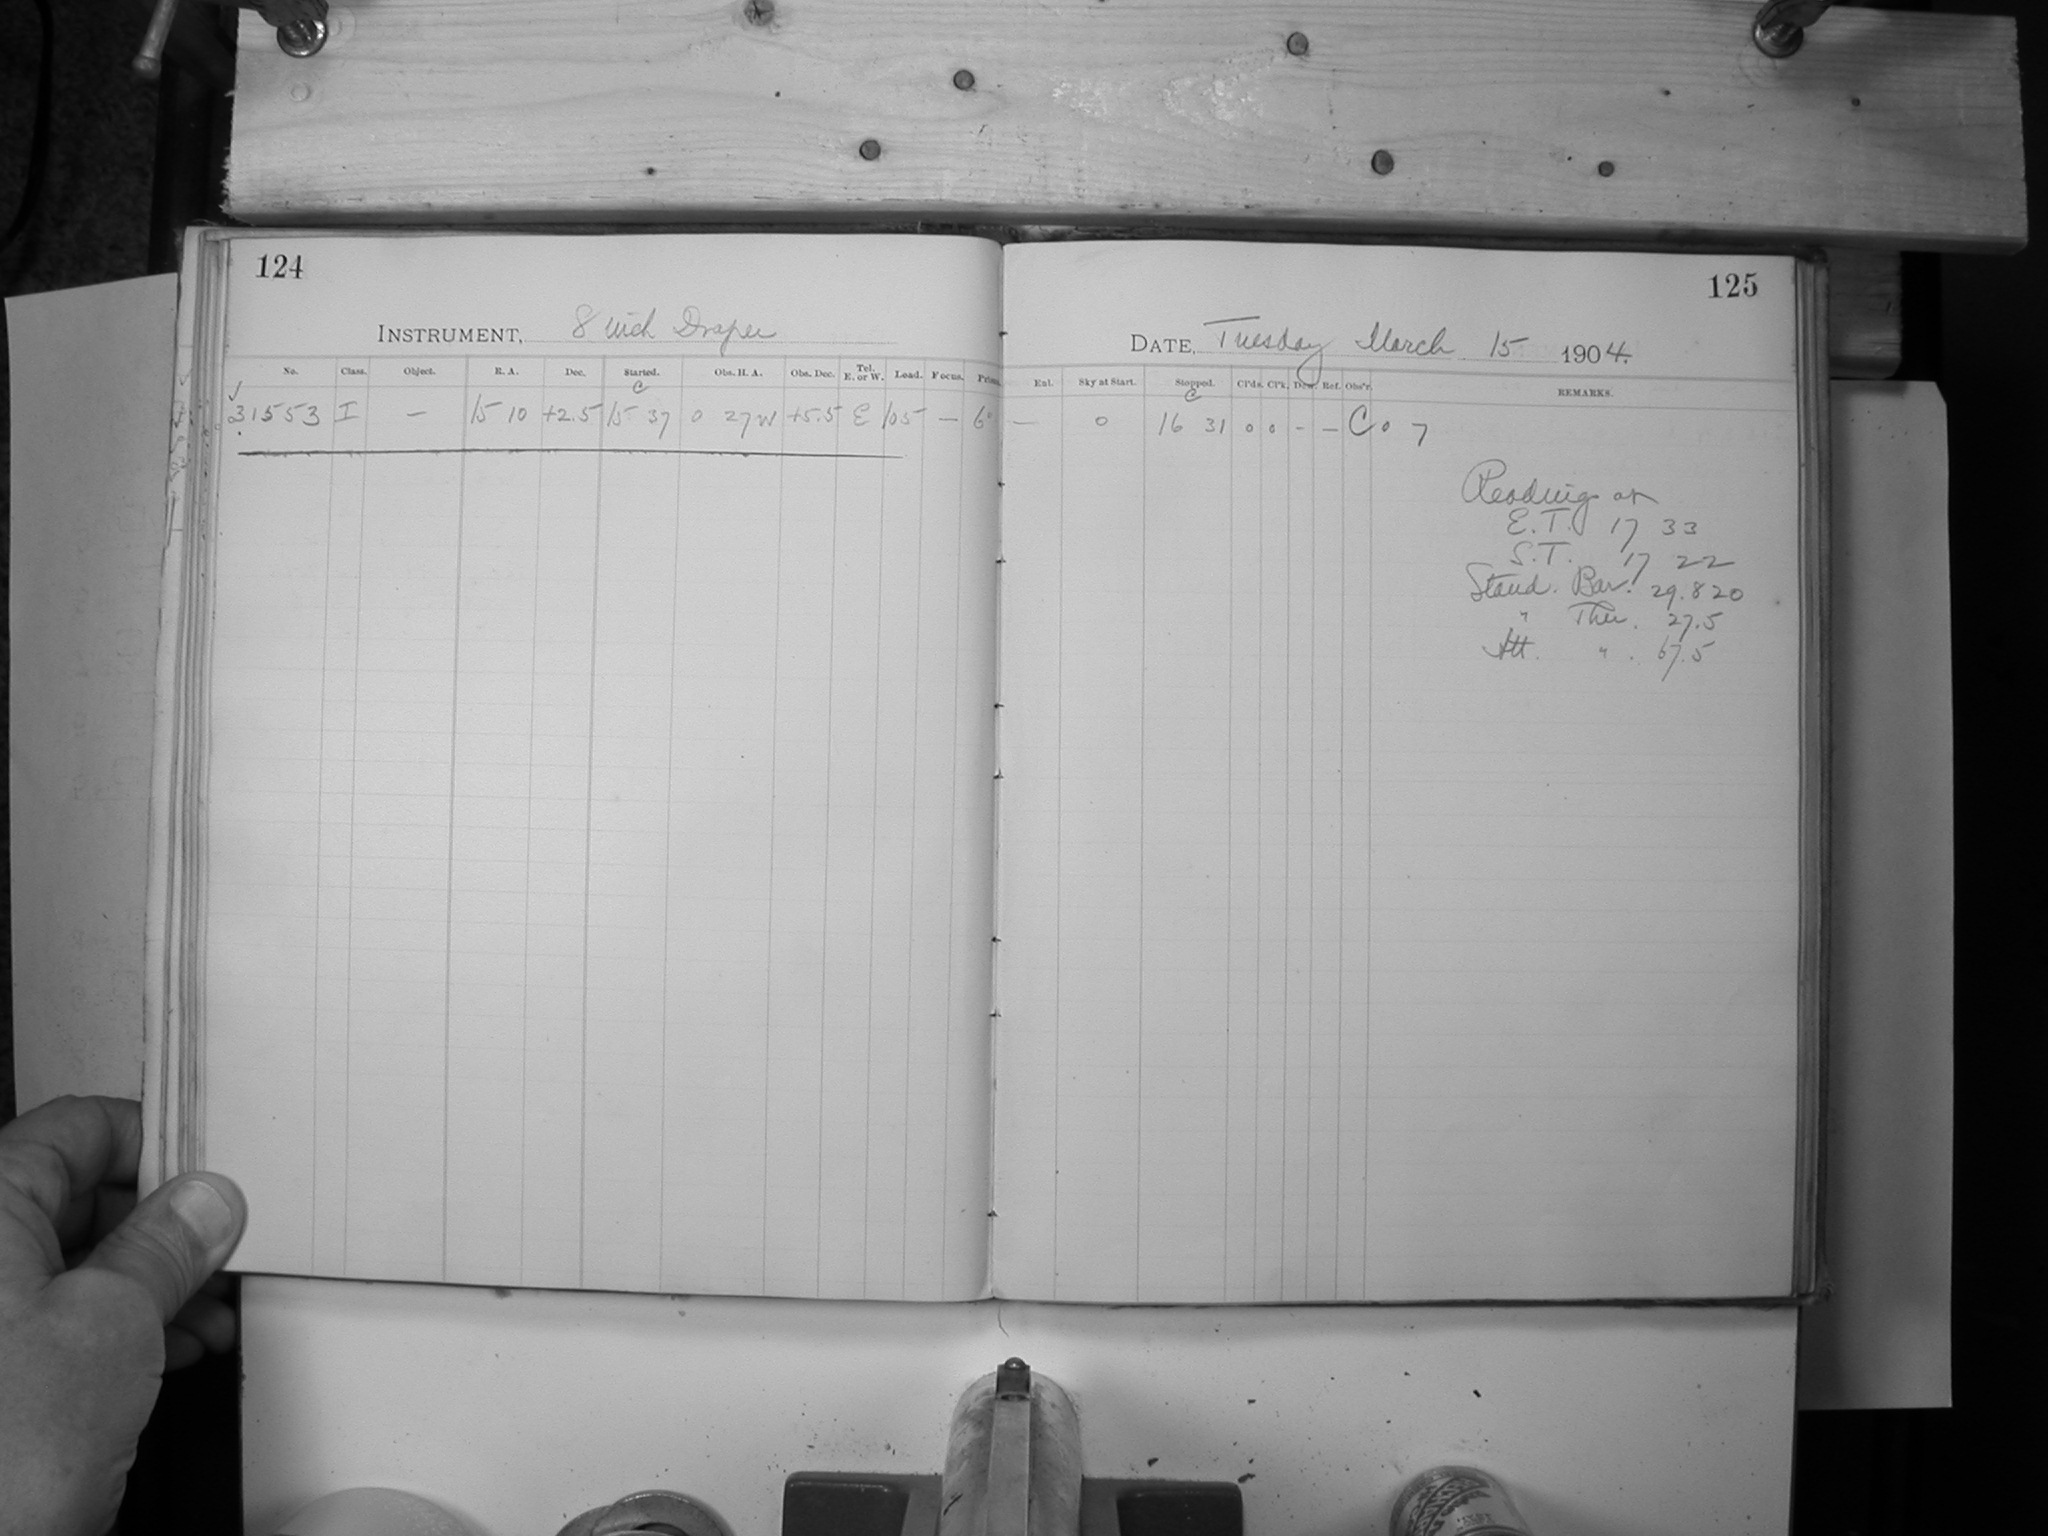 124
INSTRUMENT, 8 inch Draper
No. Class. Object. R. A. Dec. Started. Obs. H. A. Obs. Dec. Tel. E. or W. Lead. Focus. Prism.
c
31553 I — 15 10 +2.5 15 37 0 27 W +5.5 E 105 — 6°
125
DATE, Tuesday March 15 1904.
Enl. Sky at Start. Stopped. Cl'ds. Cl'k. Dew. Ref. Obs'r. REMARKS.
c
— 0 16 31 0 0 - — C 0 7
Readings at
E.T. 17 33
S.T. 17 22
Stand. Bar. 29.820
" Ther. 27.5
Att. " . 67.5